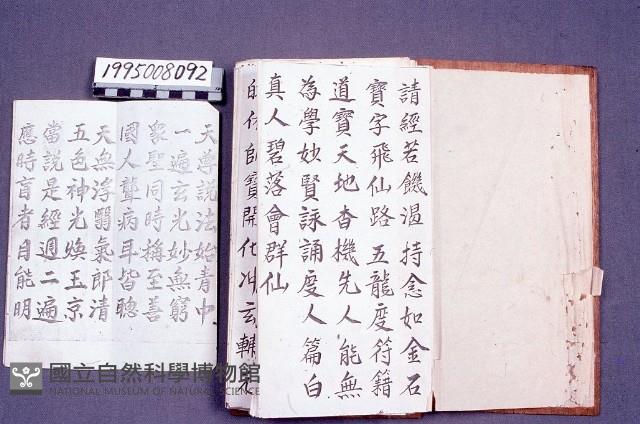 1995008092
請經若饑渴持念如金石
寶字飛仙路五龍度符籍
道寶天地杳機先人能無
為學妙賢詠誦度人篇白
真人碧落會群仙
師寶開化
玄
天尊說法始青中
一遍玄光妙無窮
眾聖同時稱至善
國人聾病耳皆聰
天無浮翳氣郎清
五色神光煥玉京
當說是經週二遍
應時盲者目能明
國立自然科學博物館
NATIONAL MUSEUM OF NATURAL SCIENCE